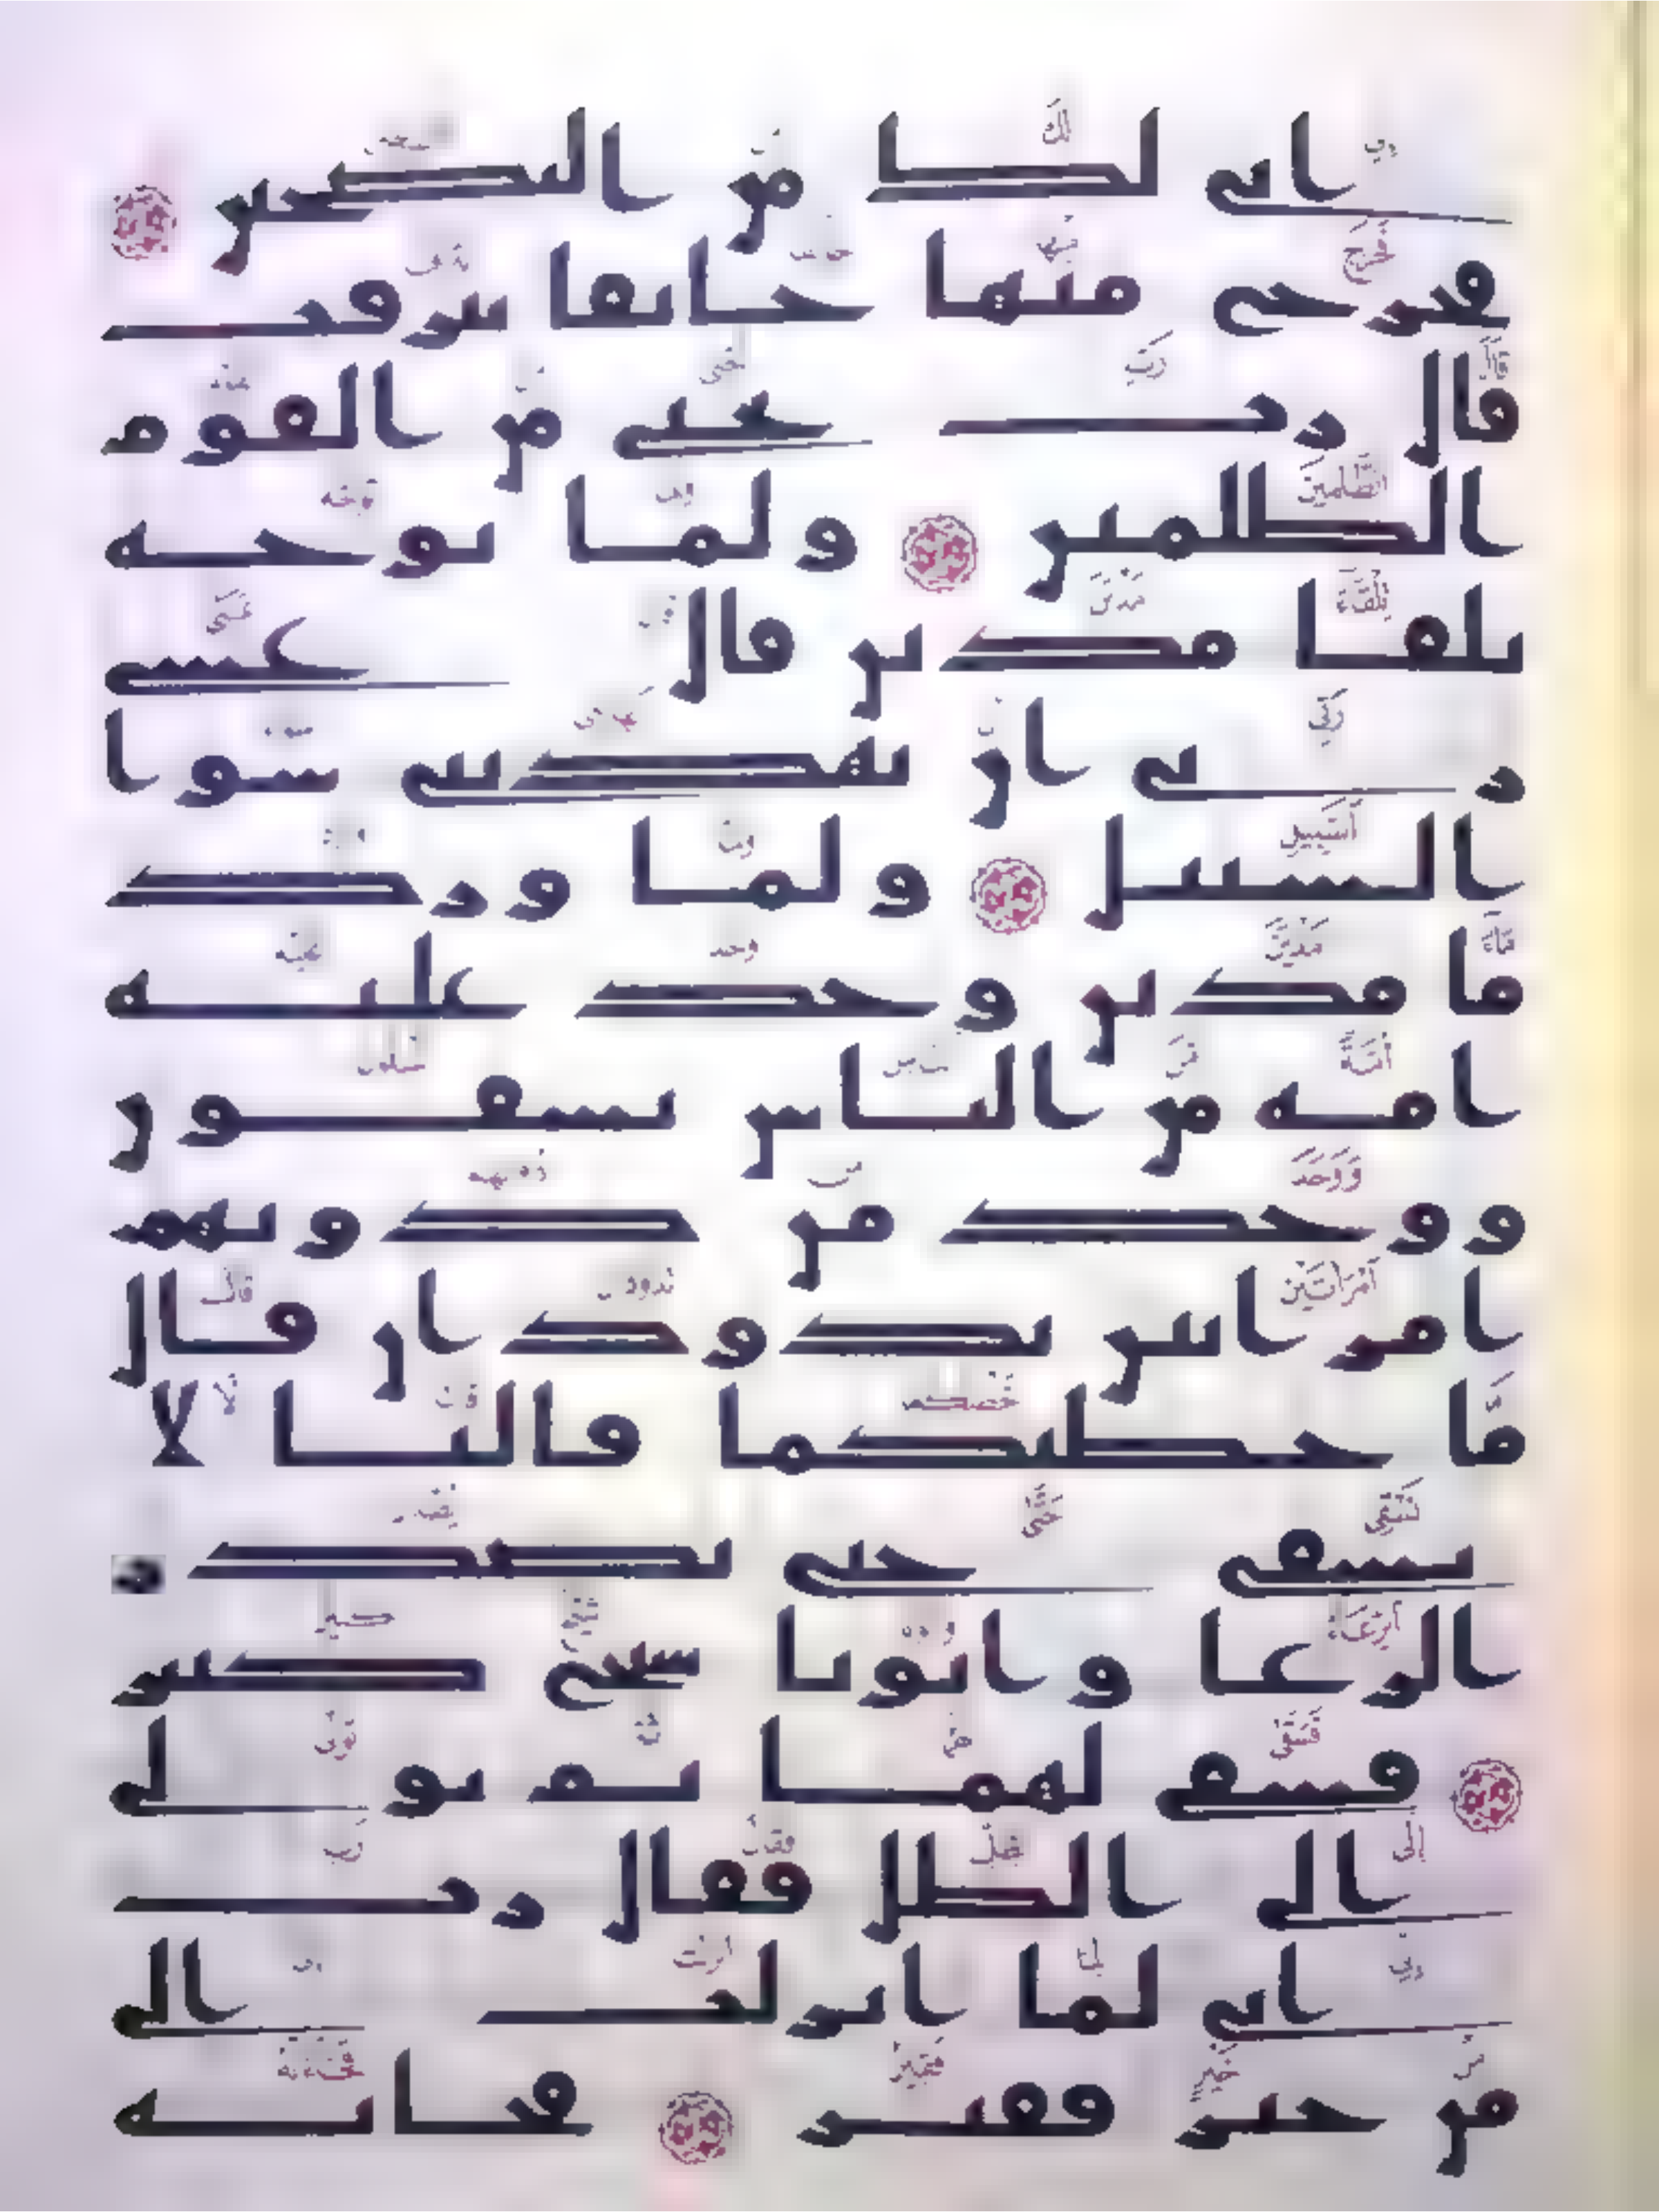 اني لك من النصحين
فخرج منها خايفا يترقب
قال رب نجني من القوم
الظلمين ولما توجه
تلقا مدين قال عسى
ربي ان يهديني سوا
السبيل ولما ورد
ما مدين وجد عليه
امة من الناس يسقون
ووجد من دونهم
امراتين تذودان قال
ما خطبكما قالتا لا
نسقي حتى يصدر
الرعا وابونا شيخ كبير
فسقى لهما ثم تولى
الى الظل فقال رب
اني لما انزلت الي
من خير فقير فجاته